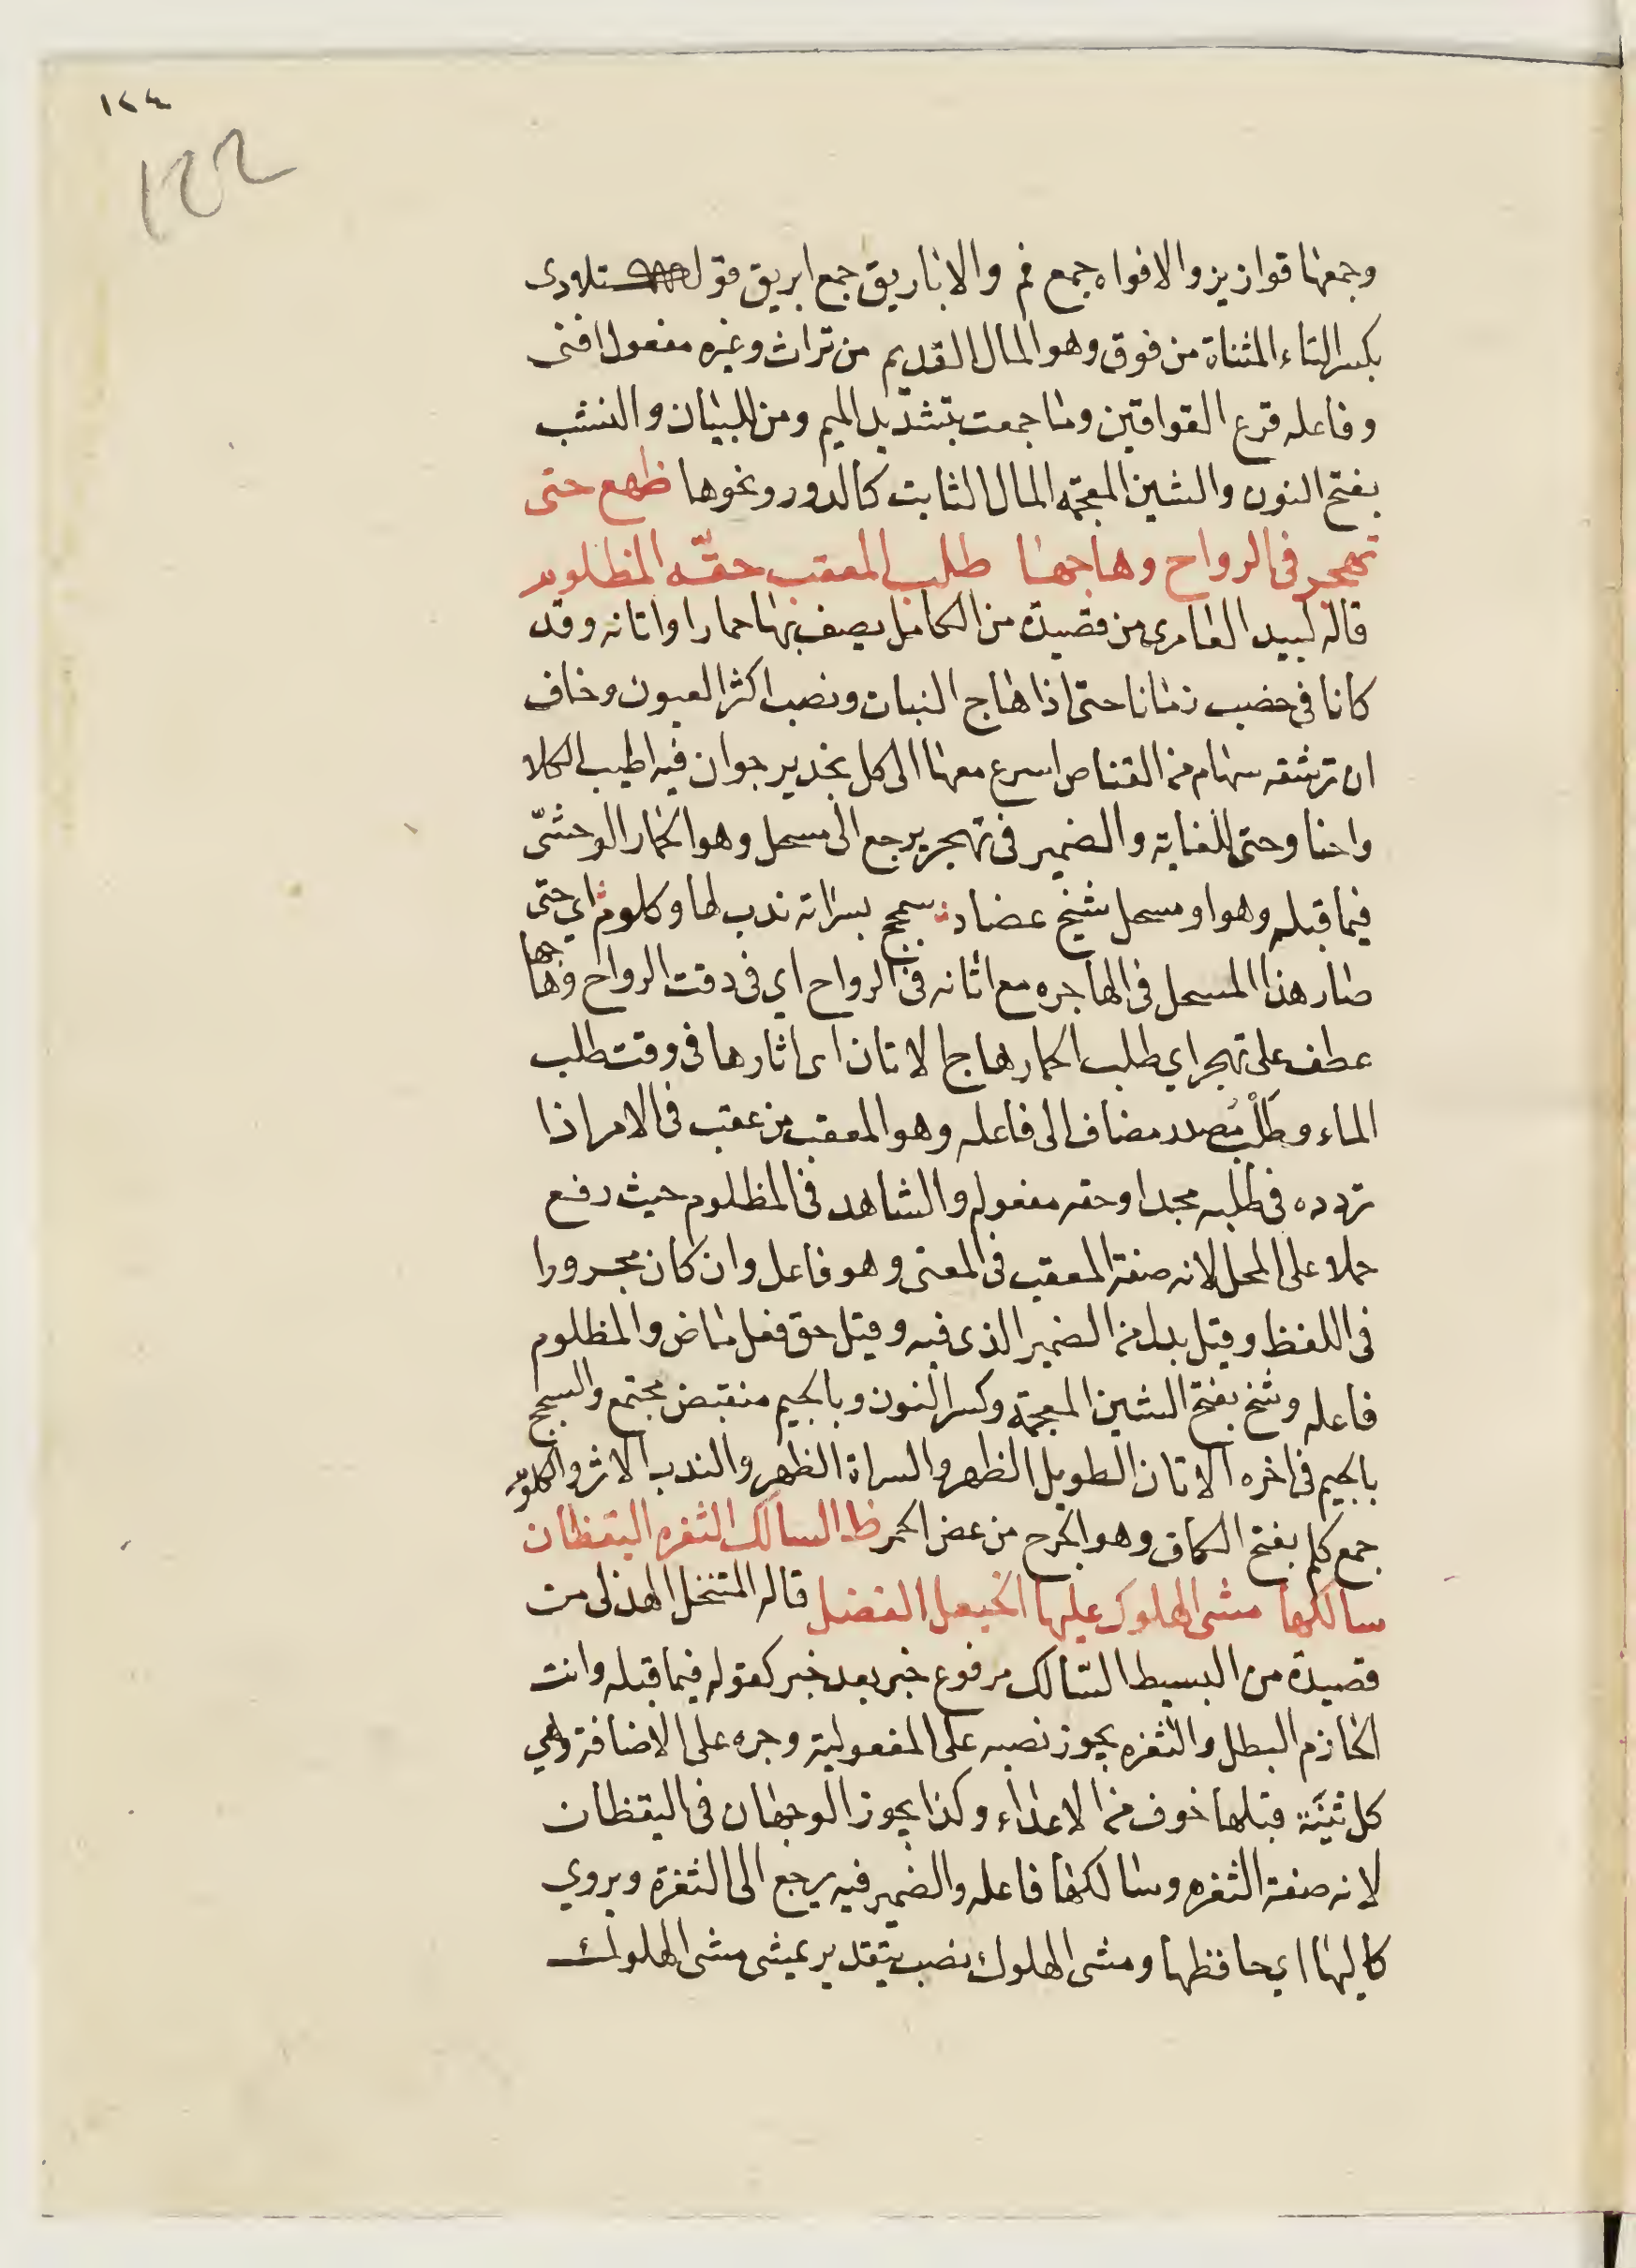 ١٢٤
122
وجمعها قوازيز والافواه جمع فم والاباريق جمع ابريق قوله تلادى
بكسر التاء المثناة من فوق وهو المال القديم من تراث وغيره مفعول افنى
وفاعله قرع القواقيز وما جمعت بتشديد الميم ومن للبيان والنشب
بفتح النون والشين المعجمة المال الثابت كالدور ونحوها ظهع حتى
تهجر فى الرواح وهاجها طلب المعقب حقّه المظلوم
قاله لبيد العامرى من قصيدة من الكامل يصف بها حمارا واتانه وقد
كانا فى خصب زمانا حتى اذا هاج النبات ونضب اكثر العيون وخاف
ان ترشقه سهام من القناص اسرع معها الى كل نجد يرجوان فيه اطيب الكلا
واحنا وحتى للغاية والضمير فى تهجر يرجع الى مسحل وهو الحمار الوحشىّ
فيما قبله وهو او مسحل شنج عضادة سمحج بسراته ندب لها وكلوم اي حتى
صار هذا المسحل فى الهاجره مع اتانه فى الرواح اي فى وقت الرواح وهاجها
عطف على تهجر اي طلب الحمار هاج الاتان اى اثارها فى وقت طلب
الماء وطَلَبُ مصدر مضاف الى فاعله وهو المعقب من عقب فى الامر اذا
تردده فى طلبه مجدا وحقه مفعوله والشاهد فى المظلوم حيث رفع
حملا على المحل لانه صفة المعقب فى المعنى وهو فاعل وان كان مجرورا
فى اللفظ وقيل بدل من الضمير الذى فيه وقيل حق فعل ماض والمظلوم
فاعله وشنج بفتح الشين المعجمة وكسر النون وبالجيم منقبض مجتمع والسمحج
بالجيم فى اخره الاتان الطويل الظهر والسراة الظهر والندب الاثر والكلوم
جمع كلم بفتح الكاف وهو الجرح من عض الحمر ظ السالك الثغره اليقظان
سالكها مشى الهلوك عليها الخيعل الفضل قاله المتنخل الهذلى من
قصيدة من البسيط السّالك مرفوع خبر بعد خبر كقوله فيما قبله وانت
الخازم البطل والثغره يجوز نصبه على المفعولية وجره على الاضافة وهي
كل ثنيّة قبلها خوف من الاعداء وكذا يجوز الوجهان فى اليقظان
لانه صفة الثغره وسالكها فاعله والضمير فيه يرجع الى الثغرة ويروي
كاليها اي حافظها ومشى الهلوك نصب بتقدير يمشى مشى الهلوك